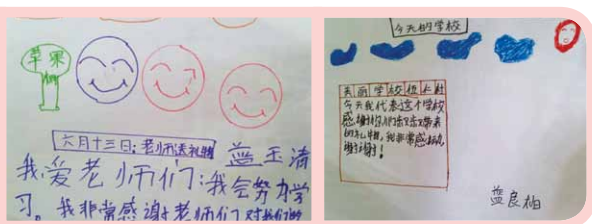 苹果
六月十三日:老师送礼物
蓝玉清
我爱老师们:我会努力学
习。我非常感谢老师们对我们的
今天的学校
美丽学校
今天我代表这个学校
感谢你们
的礼物,我非常感动
谢谢!
蓝良柏